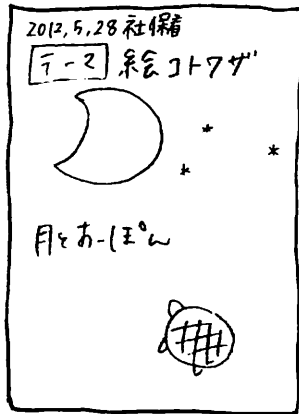 2012,5,28 社保着
テーマ 絵コトワザ
月とあーぽん